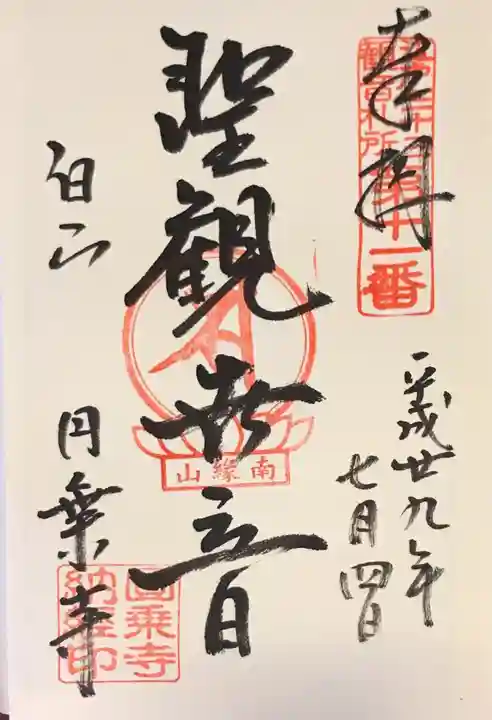 奉拝
第十一番
平成廿九年
七月四日
聖観世音
南縁山
白山
円乗寺
圓乗寺
納経印